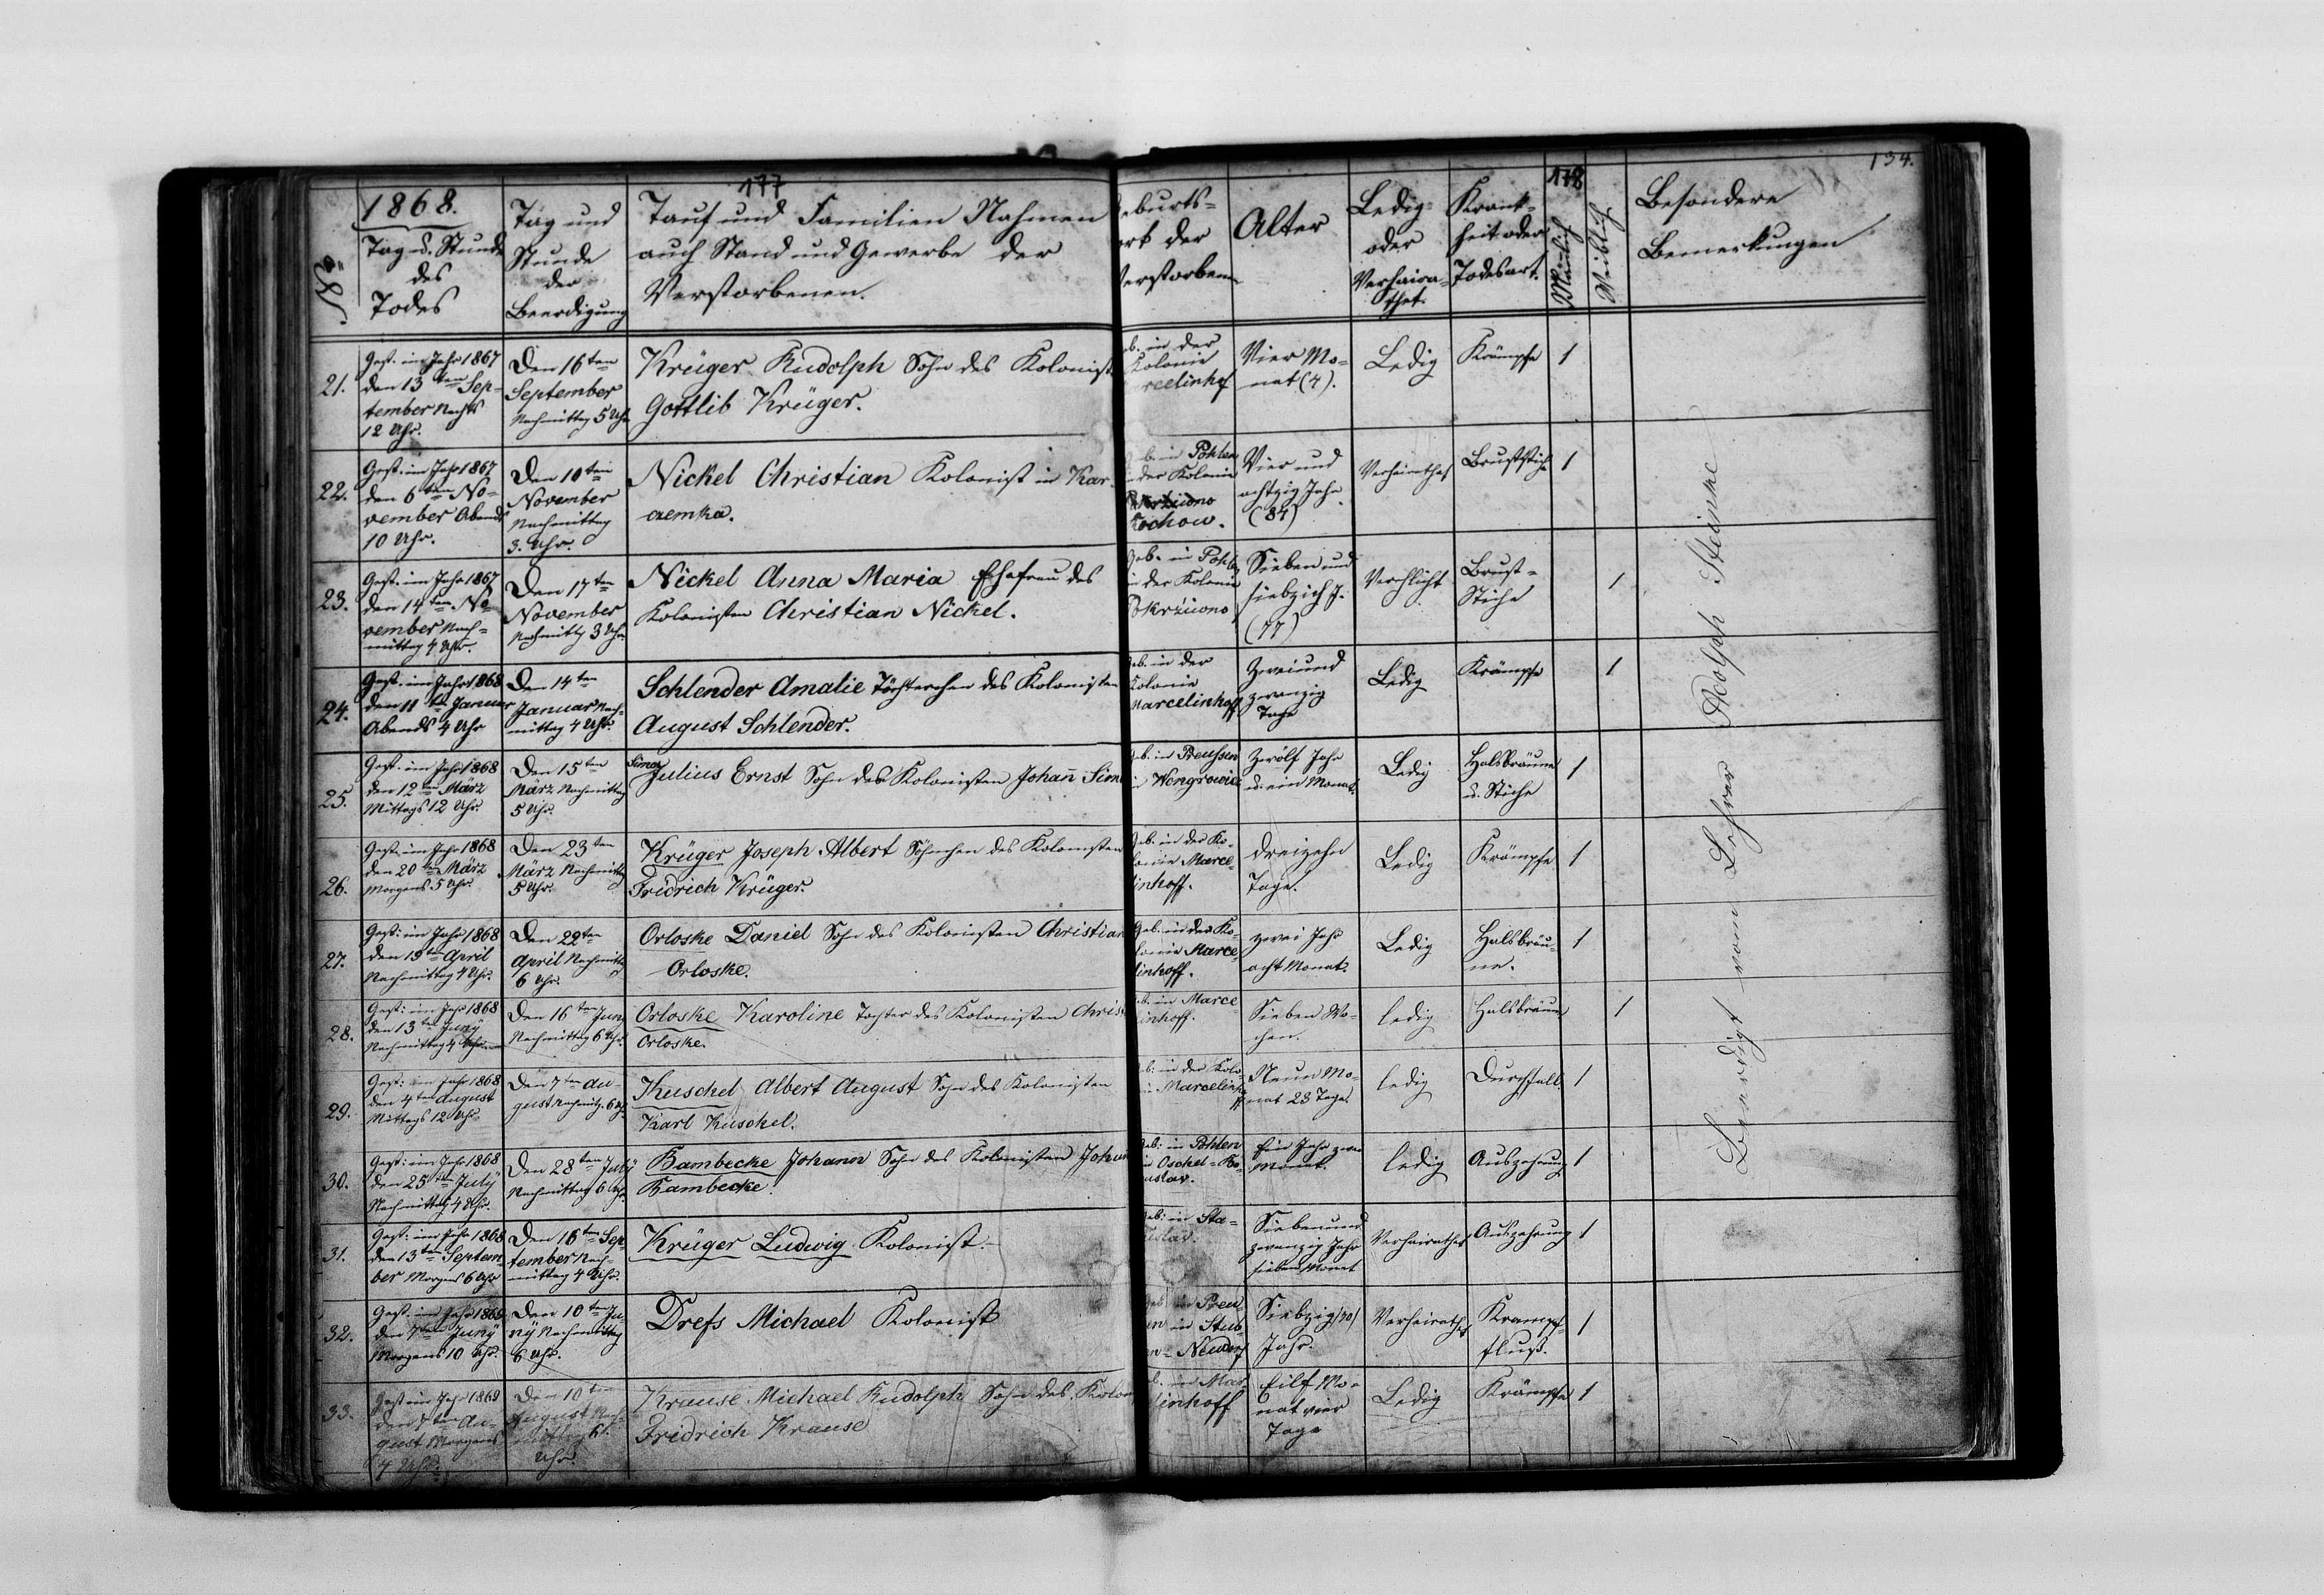 177
178
134.
No
1868.
Tag u. Stunde
des
Todes
Tag und
Stunde
der
Beerdigung
Tauf und Familien Nahmen
auch Stand und Gewerbe der
Verstorbenen.
eburts-
ort der
Verstorben
Alter
Ledig
oder
Verhaira-
thet.
Krank-
heit oder
Todesart.
Mänlich
Weiblich
Besondere
Bemerkungen
21.
Gest. im Jahr 1867
den 13ten Sep-
tember Nachts
12 Uhr.
Den 16ten
September
Nachmittag 5 Uhr
Krüger Rudolph Sohn des Kolonist
Gottlib Krüger.
eb. in der
Kolonie
rcelinhof
Vier Mo-
nat (4).
Ledig
Krämpfe
1
22.
Gest. im Jahr 1867
den 6ten No-
vember Abends
10 Uhr.
Den 10ten
November
Nachmittag
3. Uhr.
Nickel Christian Kolonist in Kar-
czemka.
eb. in Pohlen
in der Kolonie
Kochow.
Vier und
achtzig Jahr
(84)
Verheirathet
Bruststiche
1
23.
Gest. im Jahr 1867
den 14ten No-
vember Nach-
mittag 4 Uhr.
Den 17ten
November
Nachmittg 3 Uhr.
Nickel Anna Maria Ehefrau des
Kolonisten Christian Nickel.
Geb. in Pohlen
in der Kolonie
Okrziwno
Sieben und
siebzich J.
(77)
Verehlicht
Brust-
Stiche
1
24.
Gest. im Jahr 1868
den 11ten Januar
Abends 4 Uhr
Den 14ten
Januar Nach-
mittag 4 Uhr.
Schlender Amalie Töchterchen des Kolonisten
August Schlender.
Geb. in der
Kolonie
Marcelinhoff
Zwei und
zwanzig
Tage
Ledig
Krämpfe
1
25.
Gest. im Jahr 1868
den 12ten März
Mittags 12 Uhr.
Den 15ten
März Nachmittag
5 Uhr.
Simon
Julius Ernst Sohn des Kolonisten Johann Sim
Geb. in Preussen
in Wongrowie
Zwölf Jahr
u. ein Monat.
Ledig
Halsbräune
u. Stiche
1
26.
Gest. im Jahr 1868
den 20ten März
Morgens 5 Uhr.
Den 23ten
März Nachmittag
5 Uhr.
Krüger Joseph Albert Söhnchen des Kolonisten
Fridrich Krüger.
Geb. in der Ko-
lonie Marce-
linhoff.
dreizehn
Tage.
Ledig
Krämpfe
1
27.
Gest: im Jahr 1868
den 19ten April
Nachmittag 4 Uhr.
Den 22ten
April Nachmittag
6 Uhr.
Orloske Daniel Sohn des Kolonisten Christian
Orloske.
Geb. in der Ko-
lonie Marce-
linhoff.
zwei Jahr
acht Monat.
Ledig
Halsbräu-
ne.
1
28.
Gest: im Jahr 1868
den 13ten Juny
Nachmittag 4 Uhr.
Den 16ten Juny
Nachmittag 6 Uhr.
Orloske Karoline Tochter des Kolonisten Chris
Orloske.
eb. in Marce
linhoff.
Sieben Wo-
chen.
ledig
Halsbräune
1
29.
Gest: im Jahr 1868
den 4ten August
Mittags 12 Uhr.
Den 7ten Au-
gust Nachmitg. 6 Uhr
Kuschel Albert August Sohn des Kolonisten
Karl Kuschel.
eb: in der Kolo-
nie Marcelinho
ff
Neun Mo-
nat 23 Tage.
ledig
Durchfall.
1
30.
Gest: im Jahr 1868
den 25ten July
Nachmittag 4 Uhr.
Den 28ten July
Nachmittag 6 Uhr.
Bambecke Johann Sohn des Kolonisten Johan
Bambecke.
Geb: in Pohlen
in Oschel-Bo-
uslav.
Ein Jahr zwei
Monat.
ledig
Auszehrung
1
31.
Gest: im Jahr 1868
den 13ten Septem-
ber Morgens 6 Uhr
Den 16ten Sep-
tember Nach-
mittag 4 Uhr.
Krüger Ludwig Kolonist.
Geb: in Sta-
Sieben und
zwanzig Jahr
sieben Monat
Verheirathet
Auszehrung
1
32.
Gest. im Jahr 1869
den 7ten Juny
Morgens 10 Uhr.
Den 10ten Ju-
ny Nachmittag
6 Uhr.
Drefs Michael Kolonist
Geb in Preu
en in Stub
n-Neudorf
Siebzig (70)
Jahr.
Verheirathet
Krampf-
fluß.
1
33.
Gest im Jahr 1869
den 7ten Au-
gust Morgens
4 Uhr.
Den 10ten
August Nach-
mittag 6
Uhr.
Krause Michael Rudolph Sohn des Kolon
Fridrich Krause
b. in Mar
linhoff
Eilf Mo-
nat vier
Tage
Ledig
Krämpfe
1
Beerdigt vom Lehrer Adolph Steinke